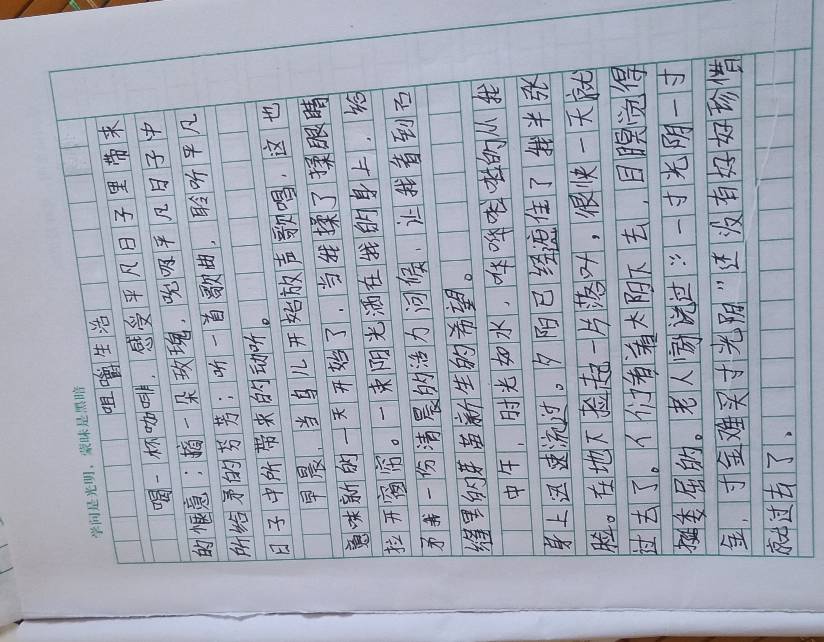 学问是光明，蒙昧是黑暗
咀嚼生活
喝一杯咖啡，感受平凡日子里带来
的惬意；摘一朵玫瑰，吮吸平凡日子中
所给予的芬芳；听一首歌曲，聆听平凡
日子中所带来的动听。
早晨，当鸟儿开始放声歌唱，这也
意味新的一天开始了，当我揉了揉眼睛
拉开窗帘。一束阳光洒在我的身上，给
予我一份清晨的活力问候，让我看到石
缝里的芽苗新生的希望。
中午，时光如水，哗哗啦啦的从我
身上迅速流过。夕阳已经遮住了我半张
脸。在地下捡起一片落叶，很快一天就
过去了。人们看着太阳下去，日暝觉得
挺委屈的。老人家说过："一寸光阴一寸
金，寸金难买寸光阴"还没有好好珍惜
就过去了。